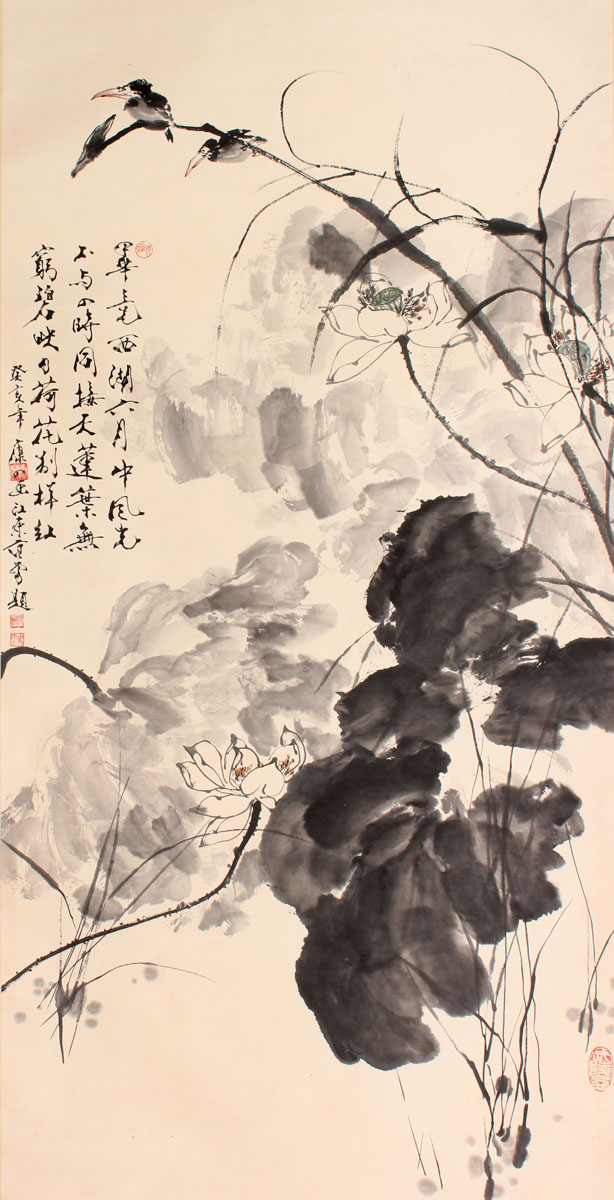 畢竟西湖六月中風光
不与四時同接天蓮葉無
窮碧映日荷花别樣紅
癸亥年康画江東題